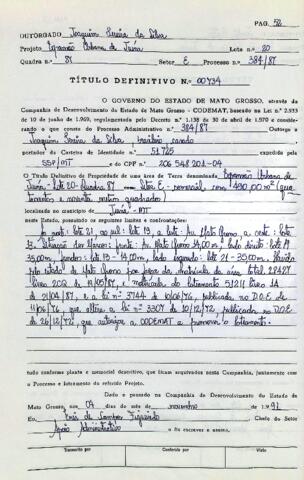 PAG. 52
OUTORGADO Joaquim Pereira da Silva
Projeto Expansão Urbana de Juína Lote no 20
Quadra n.° 87 Setor E Processo n.° 384/87
TÍTULO DEFINITIVO N.° 00434
O GOVERNO DO ESTADO DE MATO GROSSO, através da
Companhia de Desenvolvimento do Estado de Mato Grosso - CODEMAT, baseado na Lei n.° 2.933
de 10 de junho de 1.969, regulamentada pelo Decreto n.° 1.138 de 30 de abril de 1.970 e considerando
o que consta do Processo Administrativo n.° 384/87 Outorga a
Joaquim Pereira da Silva, brasileiro casado
portador da Carteira de Identidade n.° 51.725 expedida
SSP/MT e do CPF n.° 206 548 201-04
O Título Definitivo de Propriedade de uma área de Terra denominada Expansão Urbana de
Juína - Lote 20 - Quadra 87 com setor E - comercial, com 490,00 m² (qua
trocentos e noventa metros quadrados)
localizado no município de Juína - MT
neste Estado, possuindo os seguintes limites e confrontações:
norte: lote 21, ao sul: lote 19, a leste: Av. Mato Grosso a oeste: lote
13. frente: Av. Mato Grosso 14,00 m, lado direito: lote 19
35,00m, fundos: lote 13 - 14,00m, lado esquerdo: lote 21 - 35,00m.
pelo estado de Mato Grosso por área total 28427
livro 2CQ 11/05/87, e matrícula do loteamento 51211 livro 1A
de 21/04/87, e a lei n° 3744 de 10/06/76, publicada no D.O.E de
11/06/76, que altera a lei n° 3307 de 10/12/72, publicada no D.O.E
de 26/12/72, que autoriza a CODEMAT a promover o loteamento.
tudo conforme planta e memorial descritivo, que ficam arquivados nesta Companhia, juntamente com
o Processo e loteamento do referido Projeto.
Dado e passado na Companhia de Desenvolvimento do Estado de
Mato Grosso, aos 04 dias do mês de novembro de 1.991
Eu, Figueiredo Chefe do Setor
Apoio Administrativo o fiz escrever e assino.
Transcrito por Conferido por Visto